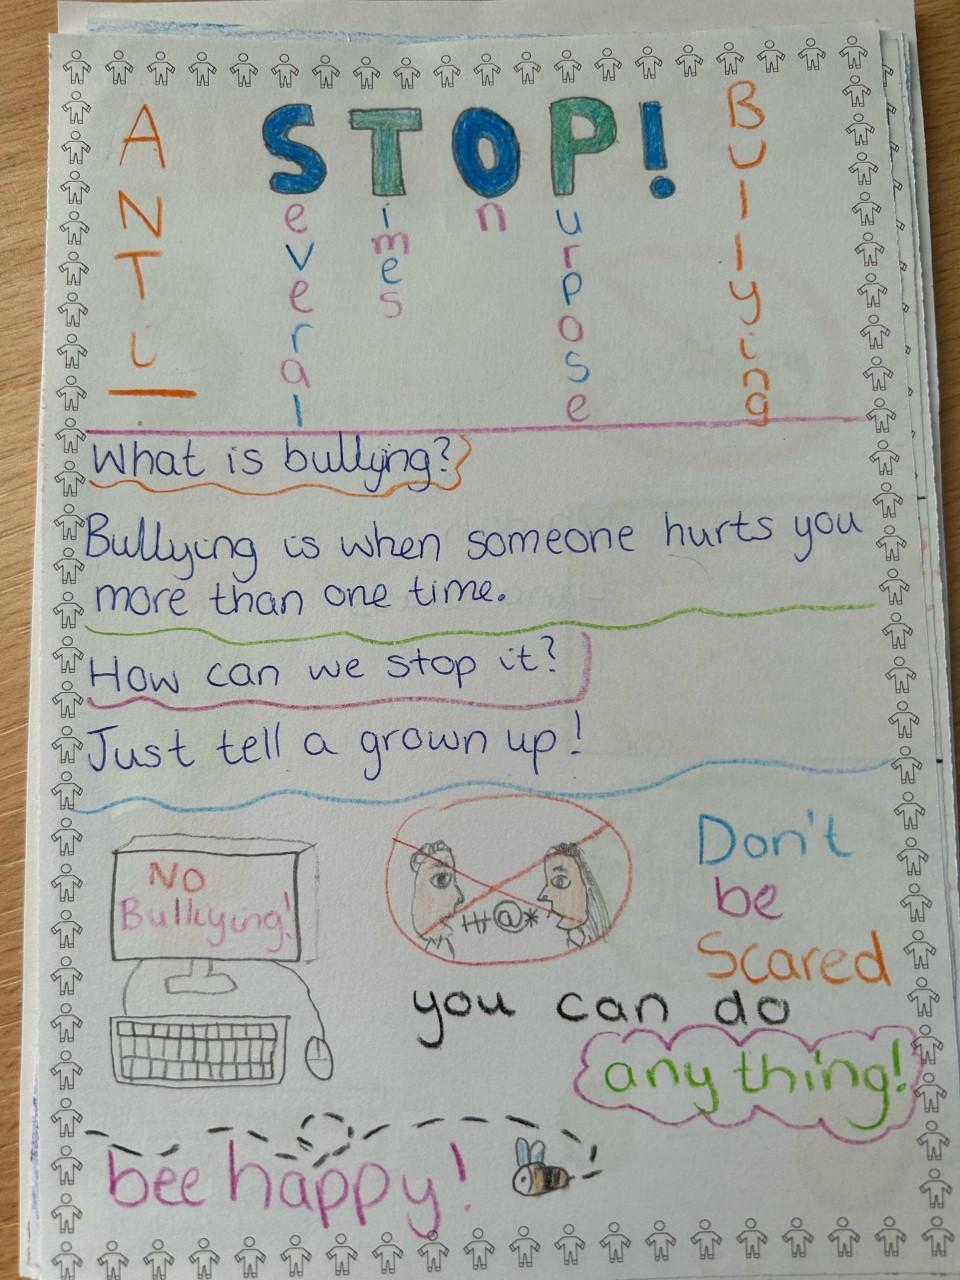 ANTi
STOP!
Several
Times
On
Purpose
Bullying
What is bullying?
Bullying is when someone hurts you
more than one time.
How can we stop it?
Just tell a grown up!
No
Bullying!
#@*
Don't
be
Scared
you can do
any thing!
bee happy!